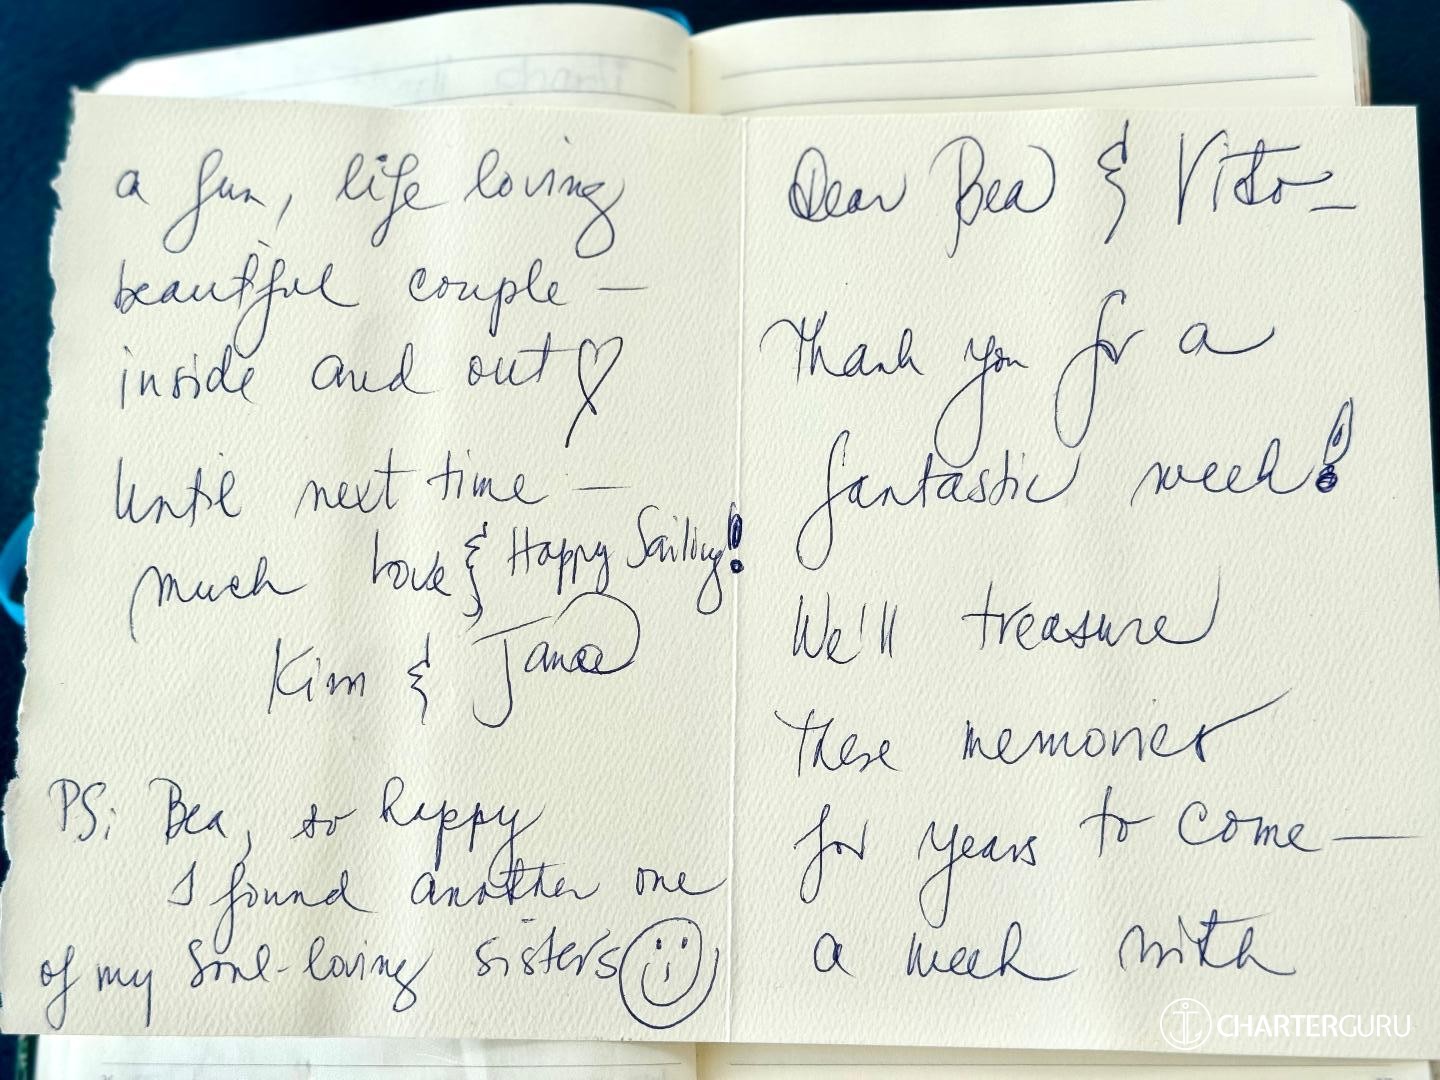 Dear Bea & Vito –
Thank you for a
fantastic week!
We'll treasure
these memories
for years to come —
a week with
a fun, life loving
beautiful couple —
inside and out ♡
Until next time —
much love & Happy Sailing!
Kim &
PS: Bea, so happy
I found another one
of my soul-loving sisters ☺
CHARTERGURU